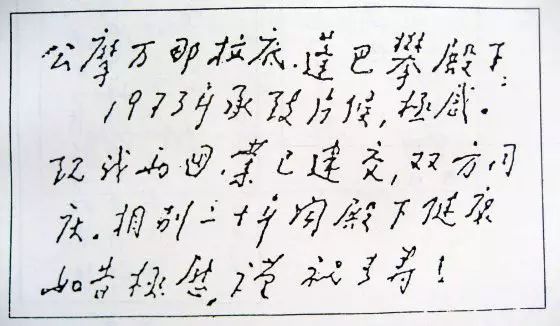 公摩万那拉底.蓬巴攀殿下:
1973年承致片候,极感。
现我两国.業已建交,双方同
庆。相别二十年闻殿下健康
如昔极慰,谨祝寿!